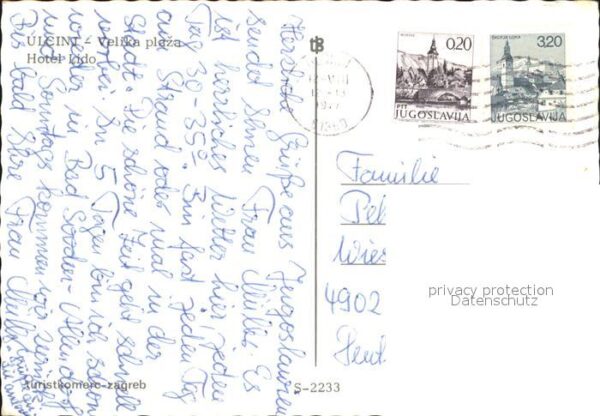 ULCINJ – Velika plaža
Hotel Lido
Herzliche Grüße aus Jugoslawien
sendet Ihnen Frau Müller. Es
ist herrliches Wetter hier, jeden
Tag 30-35°. Bin fast jeden Tag
am Strand oder mal in der
Stadt. Die schöne Zeit geht schnell
vorbei. In 5 Tagen bin ich schon
wieder in Bad Sooden-Allendorf
Sonntags kommen wir zurück
Bis bald Ihre Frau Müller
turistkomerc-zagreb
S-2233
0,20
PTT
JUGOSLAVIJA
ŠKOFJA LOKA
3,20
JUGOSLAVIJA
1977
Familie
Pel
Wies
4902
privacy protection
Datenschutz